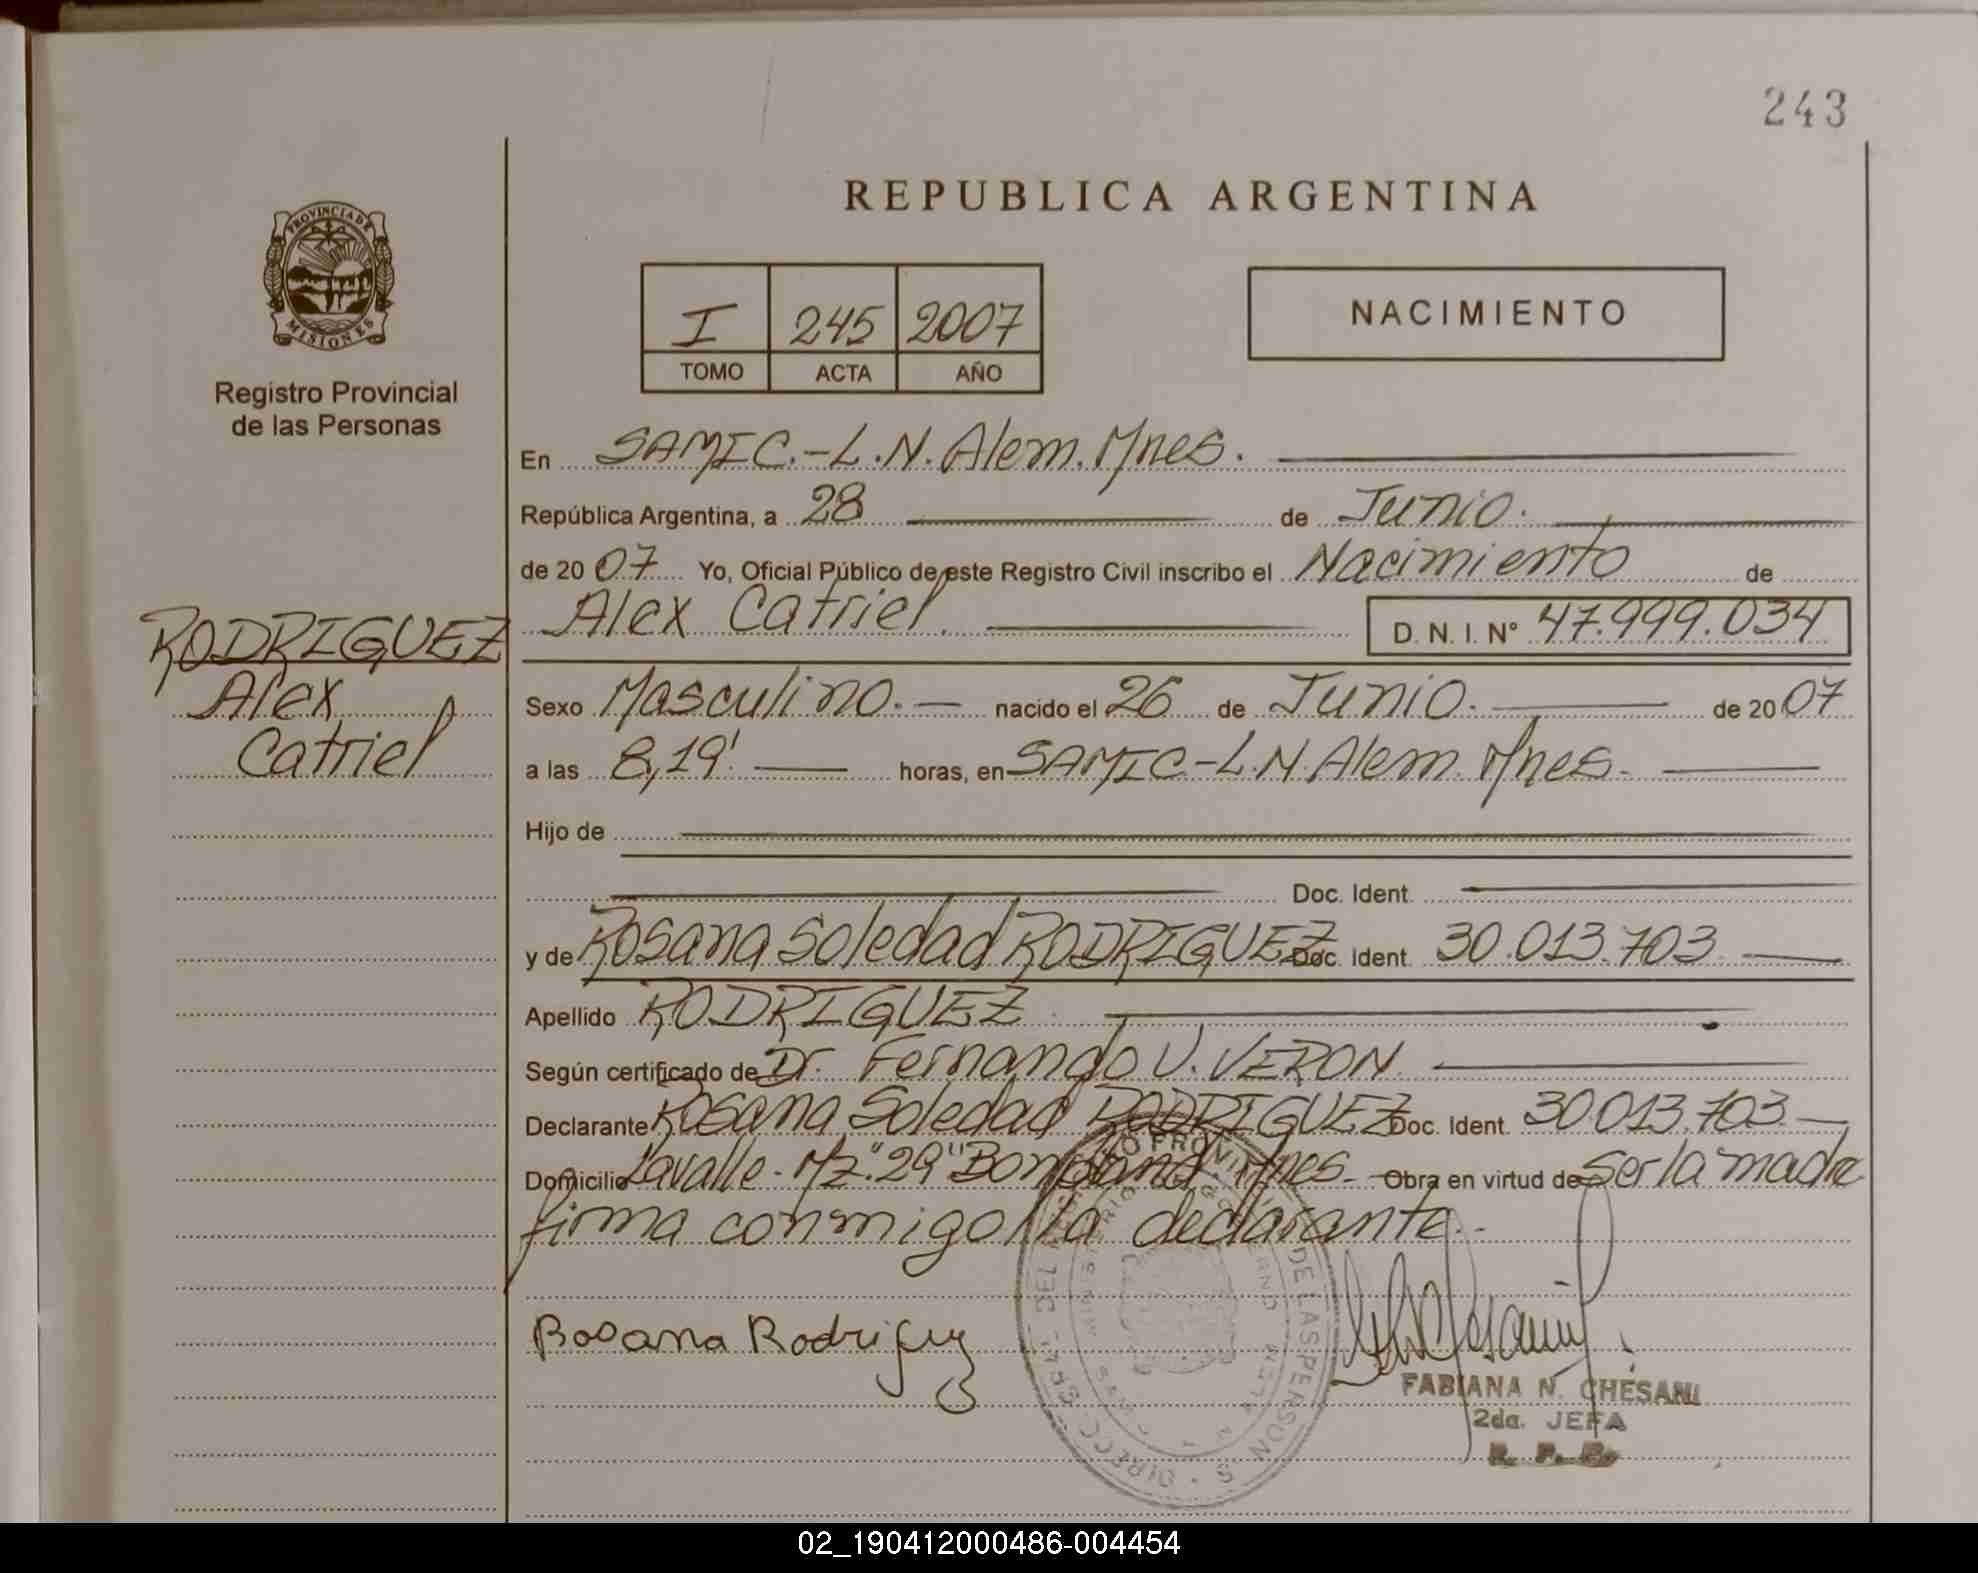 243
REPUBLICA ARGENTINA
PROVINCIA DE
MISIONES
Registro Provincial
de las Personas
I 245 2007
TOMO ACTA AÑO
NACIMIENTO
En SAMIC.-L.N. Alem. Mnes.
República Argentina, a 28 de Junio.
de 2007 Yo, Oficial Público de este Registro Civil inscribo el Nacimiento de
Alex Catriel. D. N. I. N° 47.999.034
RODRIGUEZ
Alex
Catriel
Sexo Masculino.- nacido el 26 de Junio. de 2007
a las 8,19' horas, en SAMIC-L.N. Alem. Mnes.-
Hijo de
Doc. Ident.
y de Rosana Soledad RODRIGUEZ Doc. Ident. 30.013.703
Apellido RODRIGUEZ
Según certificado de Dr. Fernando U. VERON
Declarante Rosana Soledad RODRIGUEZ Doc. Ident. 30.013.703.-
Domicilio Lavalle- Mz."29" Bompland Mnes.- Obra en virtud de Ser la madre
firma conmigo la declarante.-
Rosana Rodriguez
FABIANA N. CHESANI
2da. JEFA
R. P. P.
02_190412000486-004454